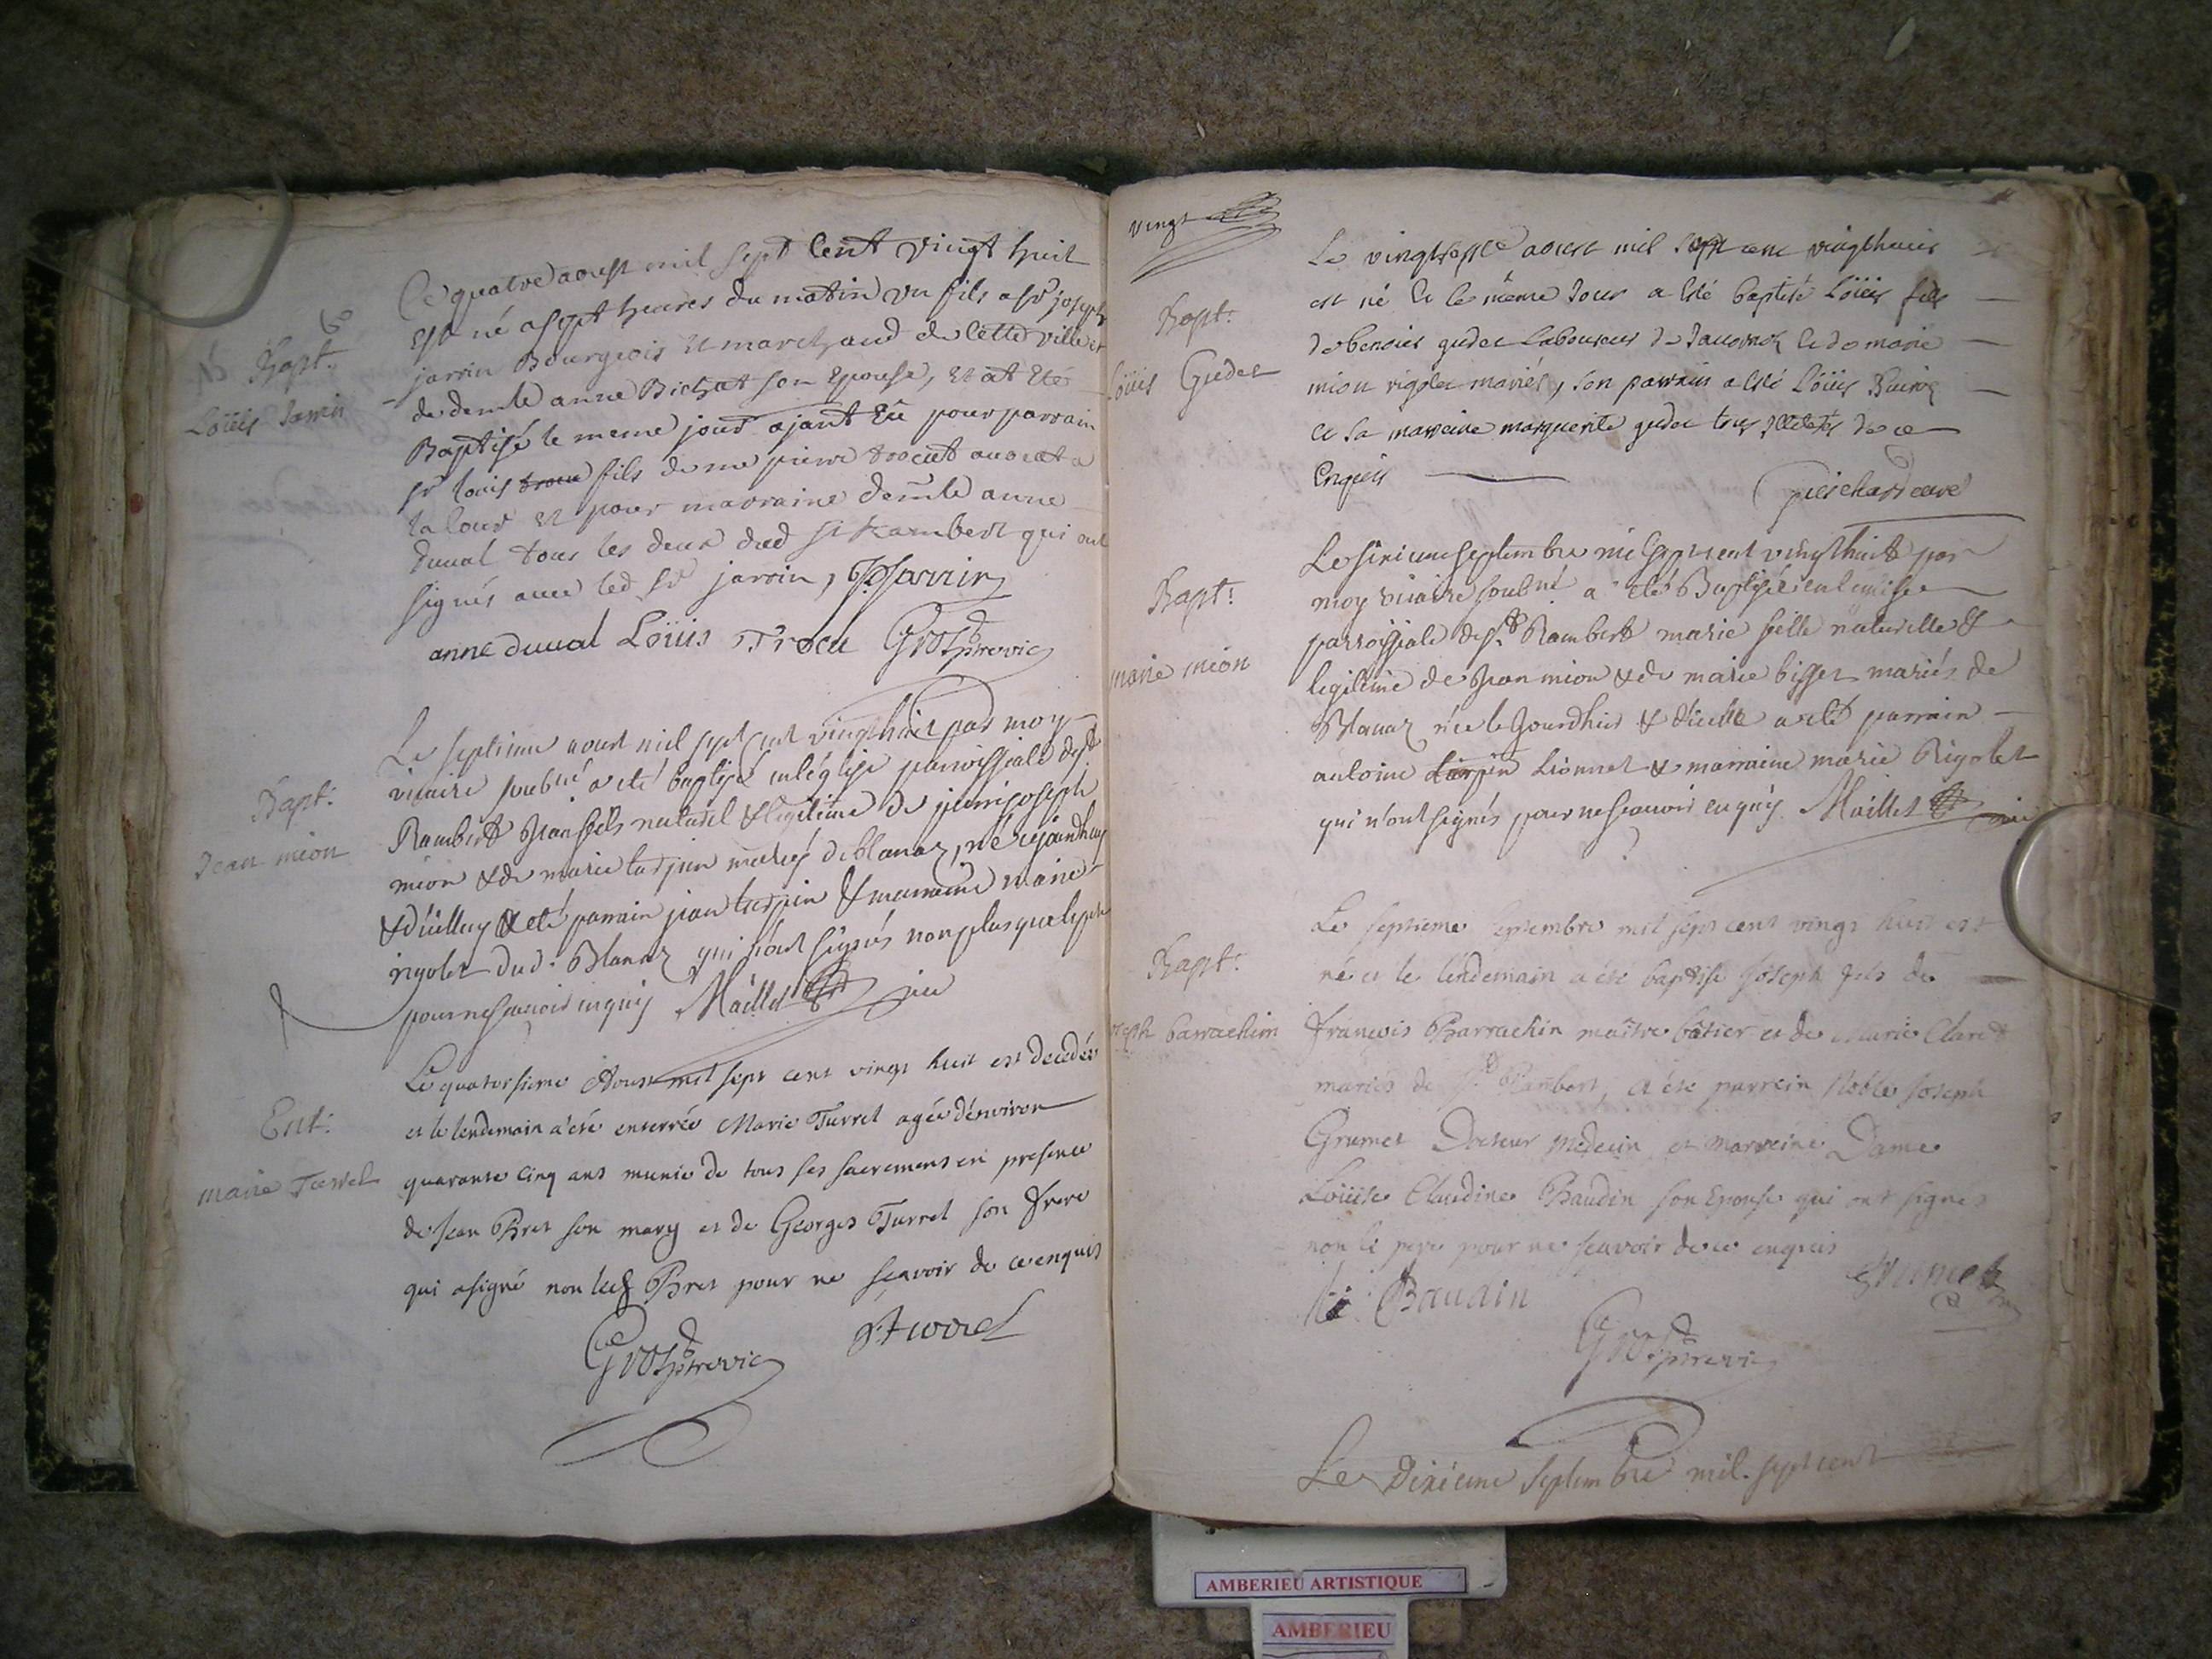 Bapt.
Loüis Jarrin
Ce quatre aoust mil sept Cent vingt huit
est né a sept heures du matin un fils a sr joseph
jarrin Bourgeois et marchand de cette ville et
de demlle anne Bichat son Epouse, et at été
Baptisé le meme jour ajant Eü pour parrain
sr louis trocu fils de me pierre trocut avocat a
la cour et pour marraine demlle anne
duval tous les deux dud st Rambert qui ont
signés avec led sr jarrin, Jarrin
anne duval Loüis Trocu Gros ptre vic
Bapt:
Jean mion
Le septieme aoust mil sept cent vingthuit par moy
vicaire soubné a eté baptisé en léglise parroissiale de st
Rambert Jean fils naturel & legitime de pierre joseph
mion & de marie turpin mariés de blanaz, né cejourdhuy
& dicelluy a eté parrain jean turpin & marraine marie
rigolet dud. Blanaz qui n'ont signés non plus que le pere
pour ne scavoir enquis Maillet vic
Ent:
marie Turrel
Le quatorsieme Aoust mil sept cent vingt huit est decedée
et le lendemain a été enterrée Marie Turrel agée d'environ
quarante cinq ans munie de tous ses sacremens en presence
de Jean Bret son mary et de Georges Turrel son frere
qui a signé non led Bret pour ne scavoir de ce enquis
Gros ptre vic Turrel
vingt
Bapt:
Loüis Gudet
Le vingt sept aoust mil sept cent vingthuit
est né et le même jour a esté baptisé Loüis fils
de benoist gudet laboureur de et de marie
mion rigolet mariés, son parrain a esté Loüis
et sa marreine marguerite gudet tous illeterés de ce
Enquis curé
Bapt:
marie mion
Le sixieme septembre mil sept cent vingthuit par
moy vicaire soubné a eté Baptisée en l'eglise
parroissiale de st Rambert marie fille naturelle &
legitime de Jean mion & de marie mariés de
Blanaz née le jourdhier & d'icelle a eté parrain
antoine turpin Lionnet & marraine marie Rigolet
qui n'ont signés pour ne scavoir enquis Maillet vic
Bapt:
joseph barrachin
Le septieme septembre mil sept cent vingt huit est
né et le lendemain a été baptisé Joseph fils de
François Barrachin maitre bâtier et de marie Claret
mariés de st Rambert, a été parrein Noble Joseph
Grumet Docteur medecin et marreine Dame
Loüise Claudine Baudin son Epouse qui ont signés
non le pere pour ne scavoir de ce enquis
Baudin Grumet
Gros ptre vic
Le Dixieme septembre mil sept cent
AMBERIEU ARTISTIQUE
AMBERIEU